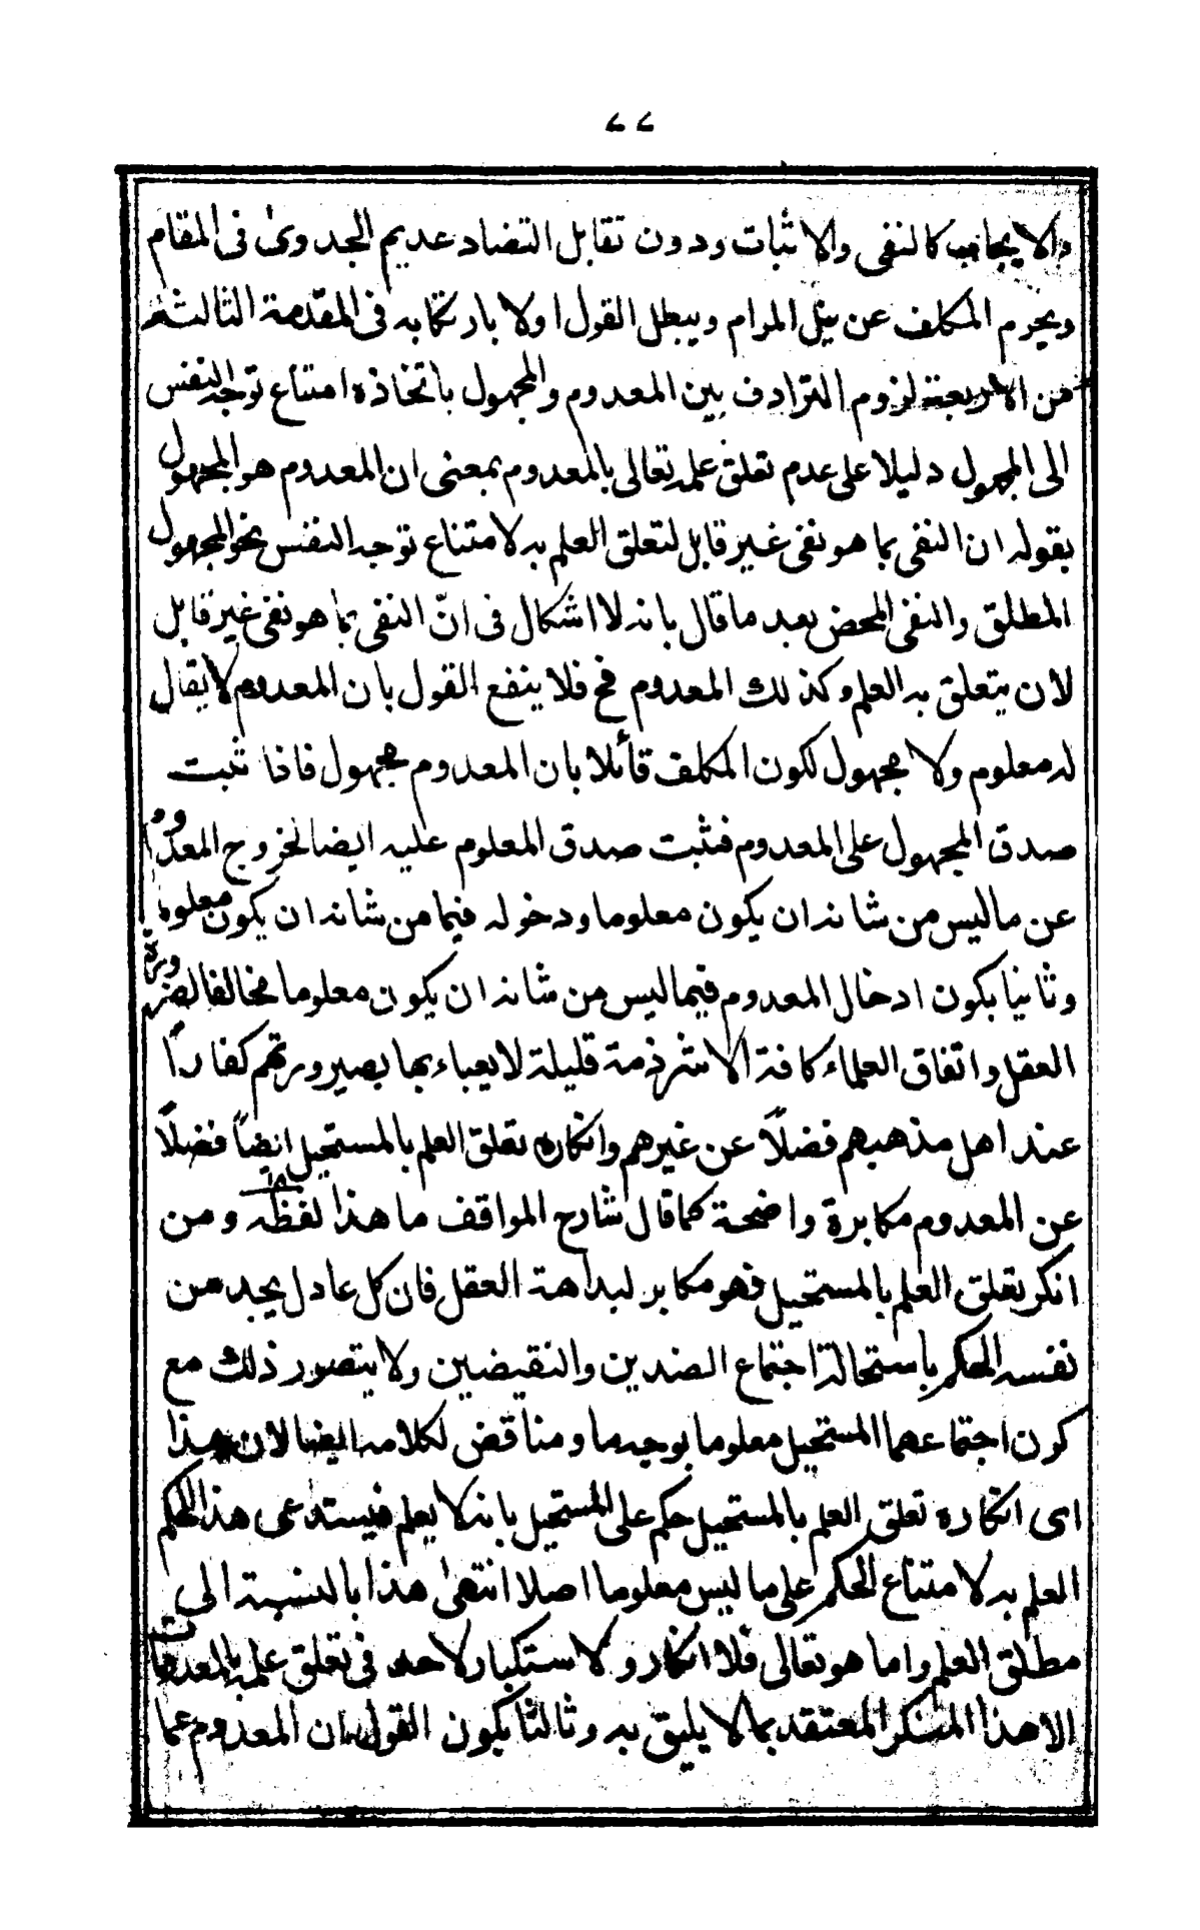 ٢٢
والايجاب كالنفى والاثبات ودون تقابل التضاد عديم الجدوى فى المقام
ويحرم المكلف عن نيل المرام ويبطل القول اولا بارتكابه فى المقدمة الثالثة
من الاربعة لزوم الترادف بين المعدوم والمجهول باتخاذه امتناع توجه النفس
الى المجهول دليلا على عدم تعلق علمه تعالى بالمعدوم بمعنى ان المعدوم هو المجهول
بقوله ان النفى بما هو نفى غير قابل لتعلق العلم به لامتناع توجه النفس نحو المجهول
المطلق والنفى المحض بعد ما قال بانه لا اشكال فى انّ النفى بما هو نفى غير قابل
لان يتعلق به العلم وكذلك المعدوم فح فلا ينفع القول بان المعدوم لا يقال
له معلوم ولا مجهول لكون المكلف قائلا بان المعدوم مجهول فاذا ثبت
صدق المجهول على المعدوم فثبت صدق المعلوم عليه ايضا لخروج المعدوم
عن ما ليس من شانه ان يكون معلوما ودخوله فيما من شانه ان يكون معلوما
وثانيا بكون ادخال المعدوم فيما ليس من شانه ان يكون معلوما مخالفا لضرورة
العقل واتفاق العلماء كافة الا شرذمة قليلة لا يعباء بها بصيرورتهم كفارًا
عند اهل مذهبهم فضلًا عن غيرهم وانكاره تعلق العلم بالمستحيل ايضاً فضلًا
عن المعدوم مكابرة واضحة كما قال شارح المواقف ما هذا لفظه ومن
انكر تعلق العلم بالمستحيل فهو مكابر لبداهة العقل فان كل عادل يجد من
نفسه الحكم باستحالة اجتماع الضدين والنقيضين ولا يتصور ذلك مع
كون اجتماعهما المستحيل معلوما بوجه ما ومناقض لكلامه ايضا لان هذا
اى انكاره تعلق العلم بالمستحيل حكم على المستحيل بانه لا يعلم فيستدعى هذا الحكم
العلم به لامتناع الحكم على ما ليس معلوما اصلا انتهىٰ هذا بالنسبة الى
مطلق العلم واما هو تعالى فلا انكار ولا استكبار لاحد فى تعلق علمه بالمعدومات
الا هذا المنكر المعتقد بما لا يليق به وثالثا بكون القول بان المعدوم عما